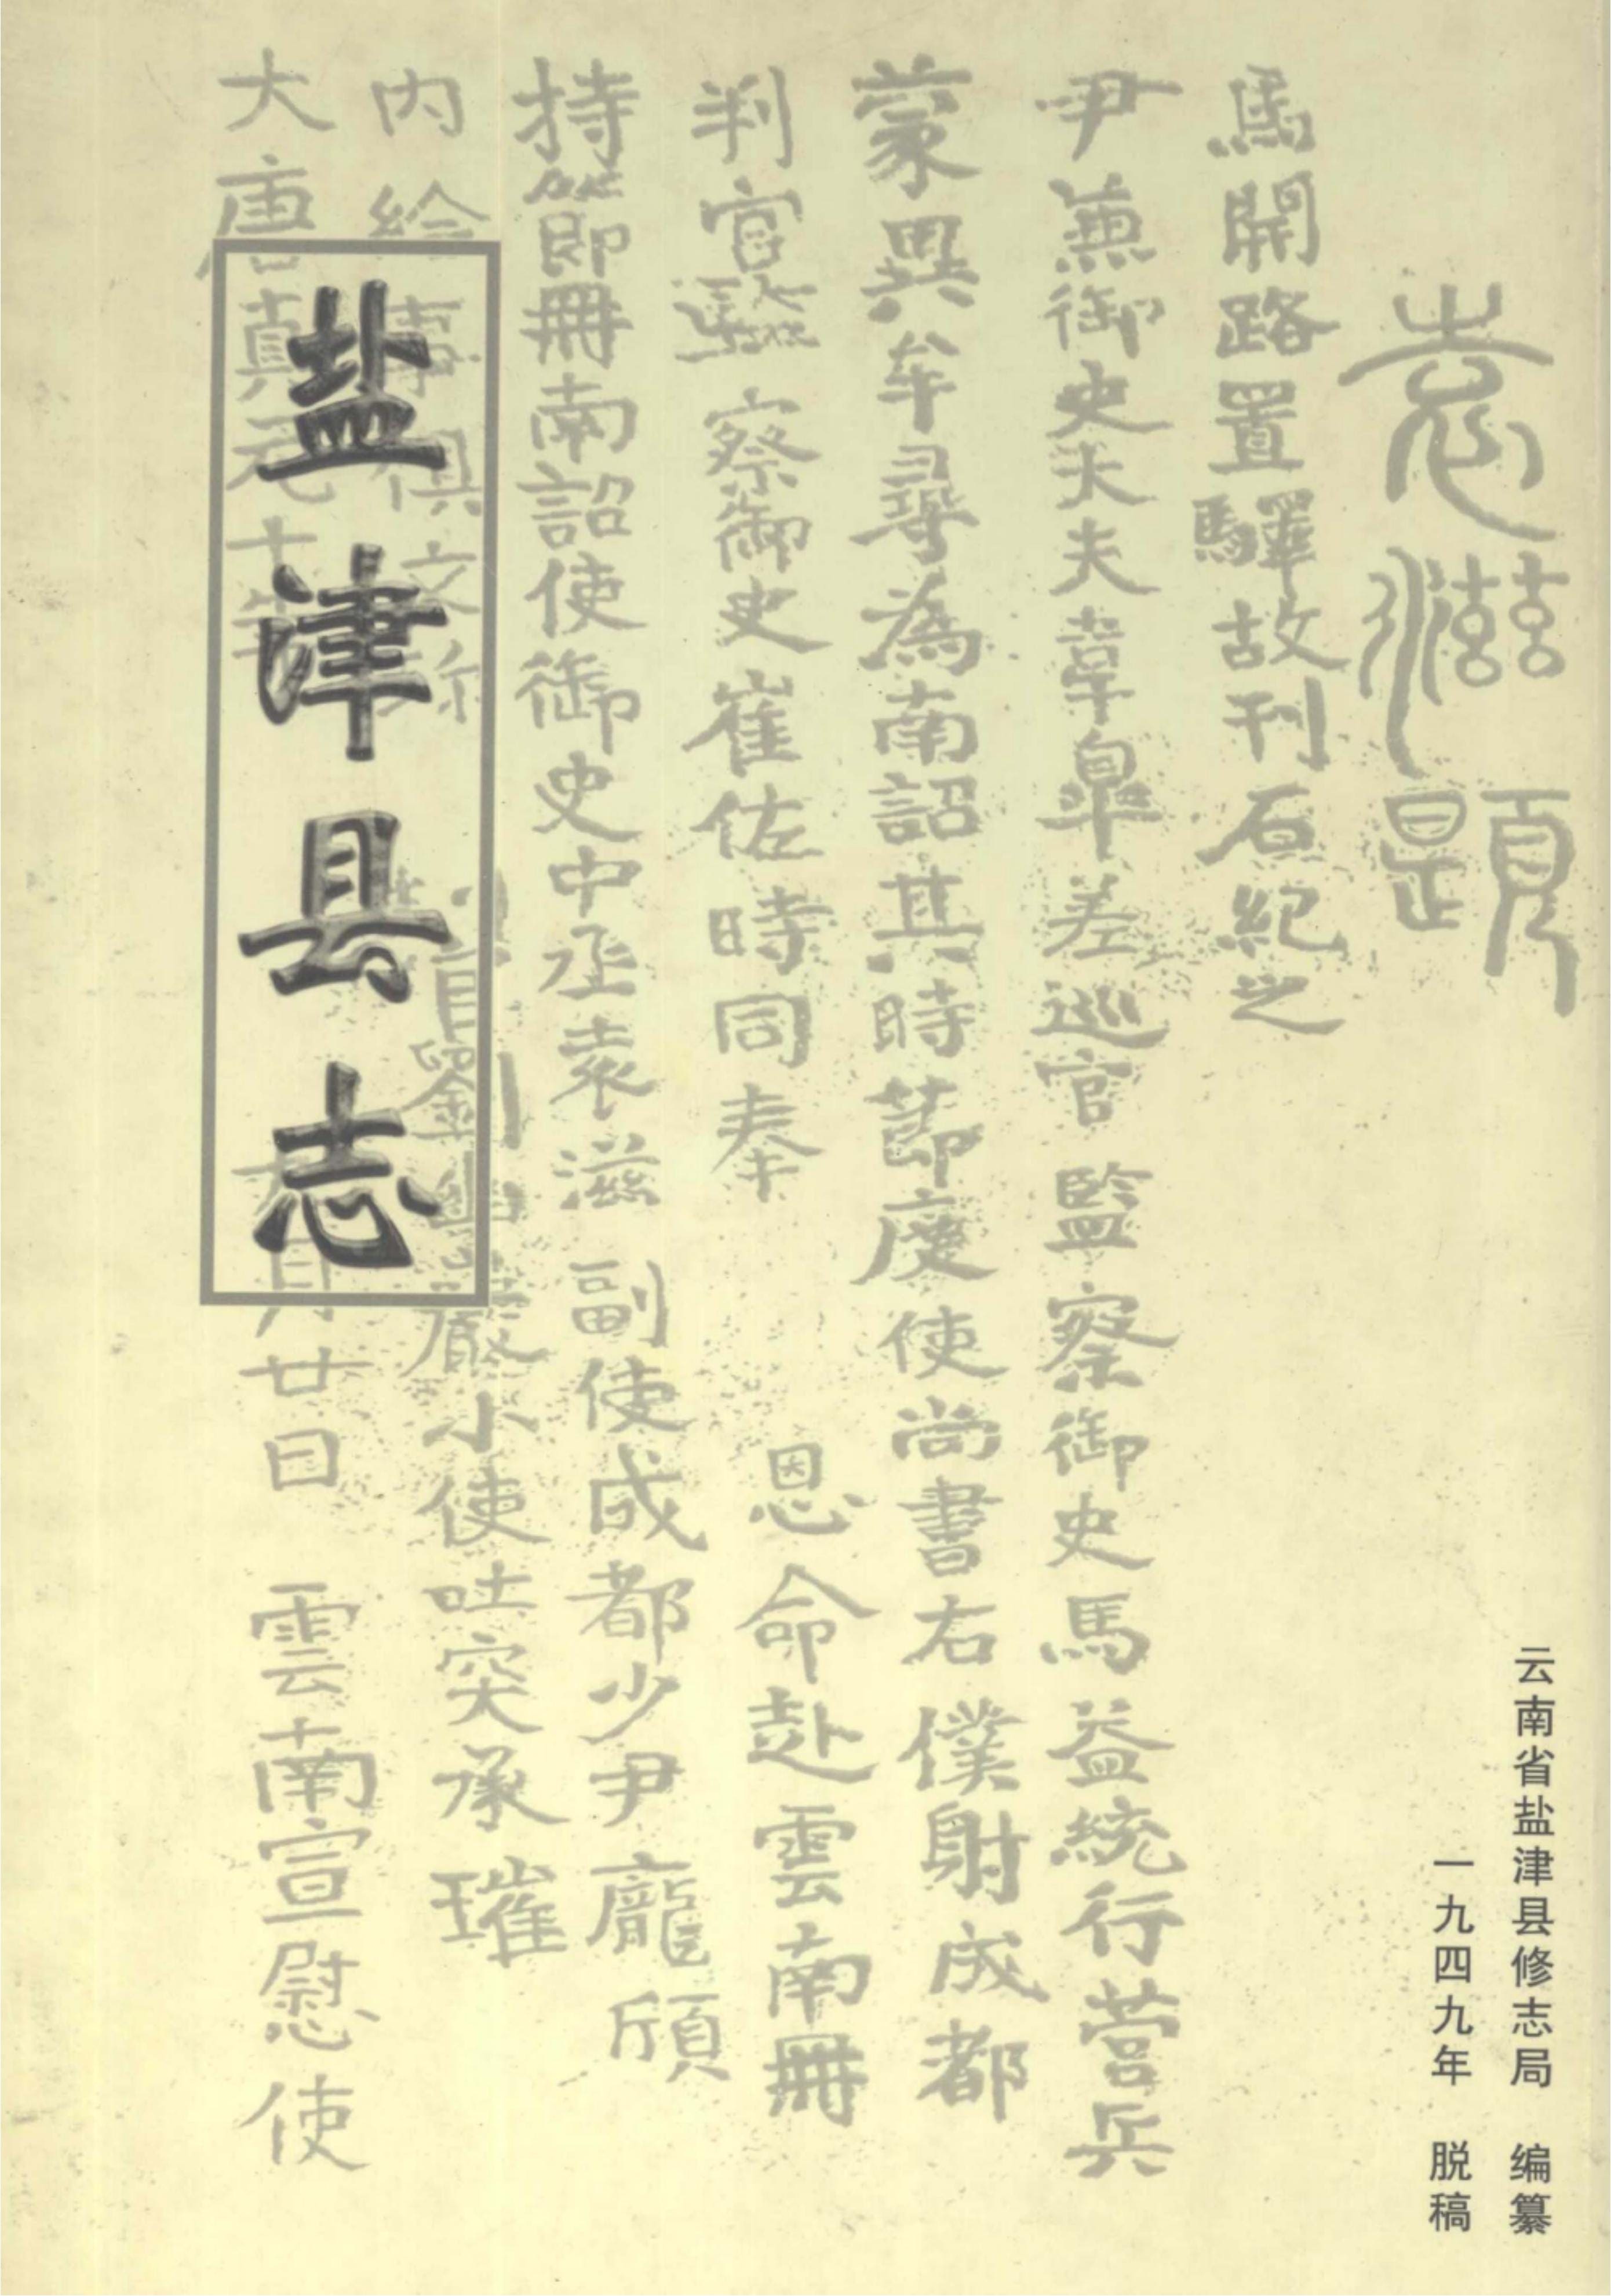 盐津县志
大唐貞元十年九月廿日 雲南宣慰使
内給事俱文珎 官劉幽巖小使吐突承璀
持節冊南詔使御史中丞袁滋 副使成都少尹龐頎
判官監察御史崔佐時同奉 恩命赴雲南冊
蒙異牟尋為南詔其時節度使尚書右僕射成都
尹兼御史大夫韋皐差巡官監察御史馬益統行營兵
馬開路置驛故刊石紀之
袁滋題
云南省盐津县修志局 编纂
一九四九年 脱稿